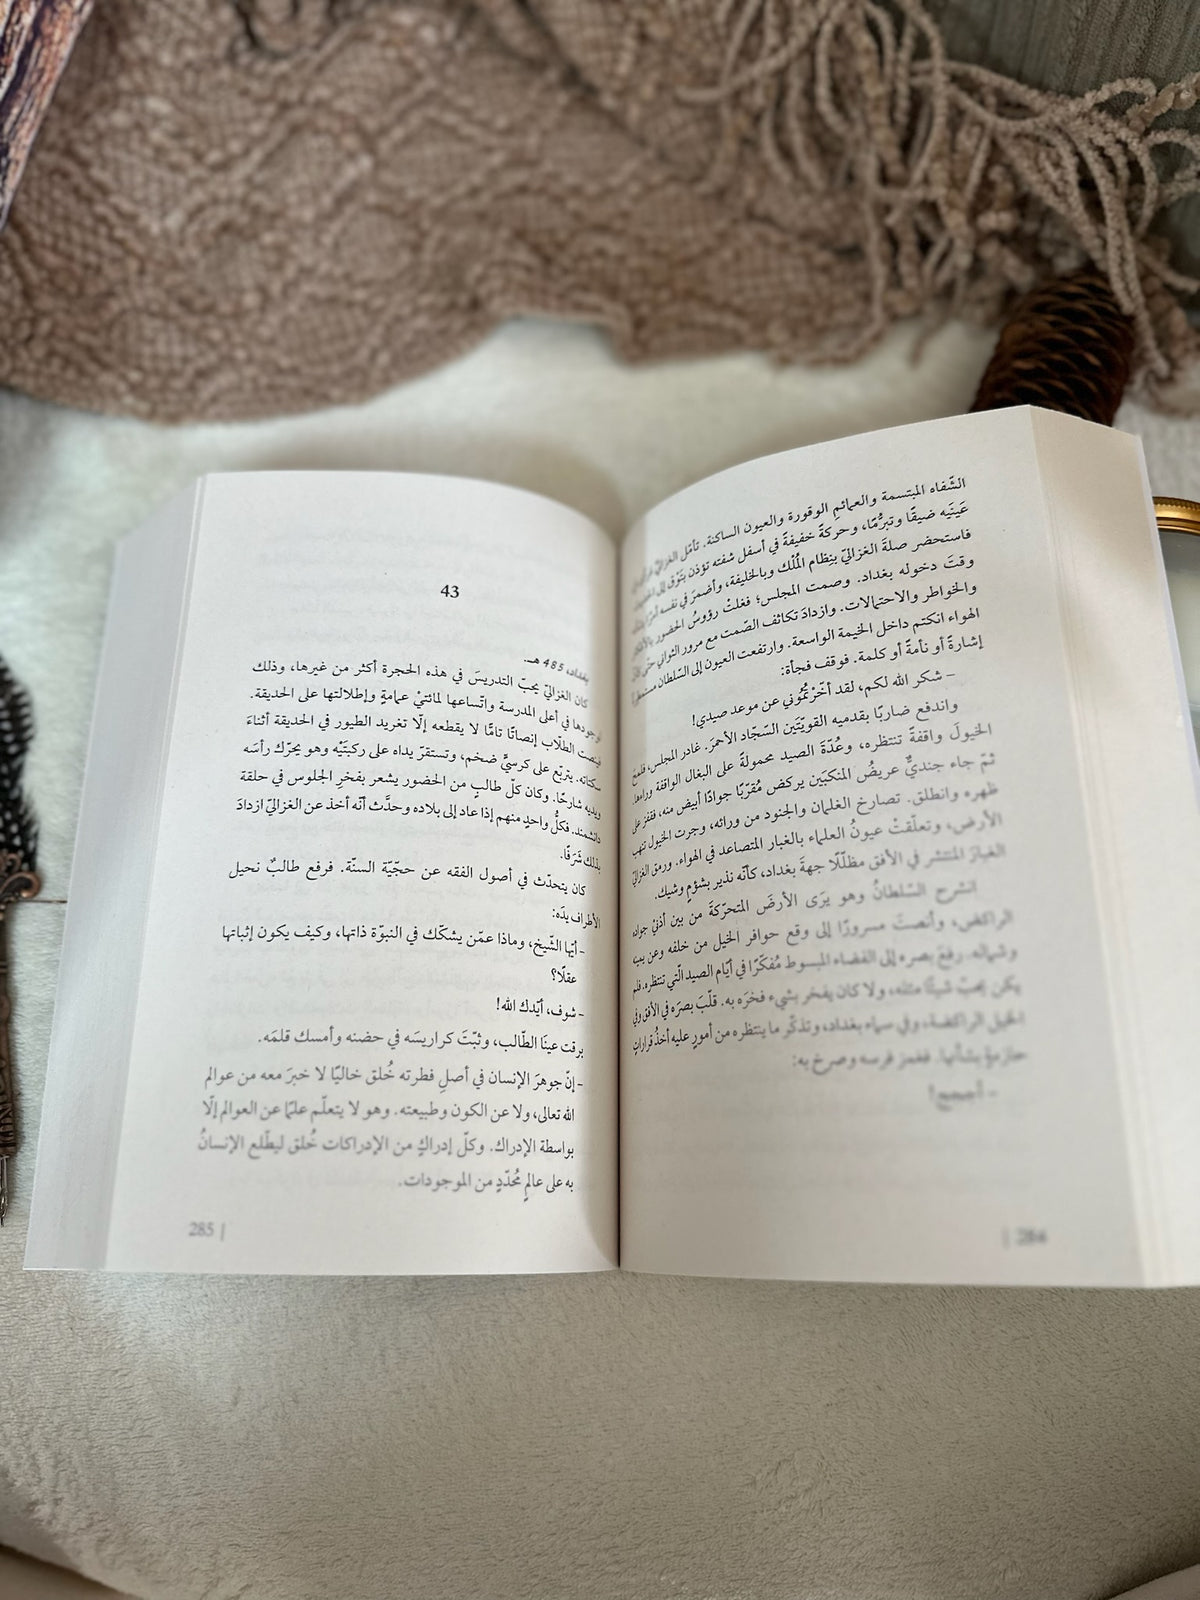 الشّفاه المبتسمة والعمائمِ الوقورة والعيون الساكنة. تأمّل الغزاليّ
عَينَيه ضيقًا وتبرُّمًا، وحركةً خفيفةً في أسفل شفته تؤذن بتَوْقٍ إلى
فاستحضر صلةَ الغزاليّ بنِظام المُلْك وبالخليفة، وأضمرَ في نفسه
وقتَ دخوله بغداد. وصمت المجلس؛ فغلتْ رؤوسُ الحضور
والخواطر والاحتمالات. وازدادَ تكاثف الصّمت مع مرور الثواني حتّى كأنّ
الهواء انكتم داخل الخيمة الواسعة. وارتفعت العيون إلى السّلطان منتظرةً
إشارةً أو نأمةً أو كلمة. فوقف فجأة:
– شكر الله لكم، لقد أخّرْتُمُوني عن موعد صيدي!
واندفع ضاربًا بقدميه القويّتَين السّجّاد الأحمرَ. غادر المجلس، فلمحَ
الخيولَ واقفةً تنتظره، وعُدّةَ الصيد محمولةً على البغال الواقفة وراءها.
ثمّ جاء جنديٌّ عريضُ المنكبَين يركض مُقرّبًا جوادًا أبيض منه، فقفز على
ظهره وانطلق. تصارخ الغلمان والجنود من ورائه، وجرت الخيول تنهب
الأرض، وتعلّقتْ عيونُ العلماء بالغبار المتصاعد في الهواء. ورمق الغزاليّ
الغبارَ المنتشر في الأفق مظلّلًا جهةَ بغداد، كأنّه نذير بشؤمٍ وشيك.
انشرح السّلطانُ وهو يرَى الأرضَ المتحرّكةَ من بين أذنيْ جواده
الراكض، وأنصتَ مسرورًا إلى وقع حوافر الخيل من خلفه وعن يمينه
وشماله. رفعَ بصره إلى الفضاء المبسوط مُفكّرًا في أيّام الصيد الّتي تنتظره. فلم
يكن يحبّ شيئًا مثله، ولا كان يفخر بشيء فخرَه به. قلّبَ بصرَه في الأفق وفي
الخيل الراكضة، وفي سماء بغداد، وتذكّر ما ينتظره من أمورٍ عليه أخذُ قراراتٍ
حازمةٍ بشأنها. فغمز فرسه وصرخ به:
284 |
43
بغداد، 485 هـ.
كان الغزاليّ يحبّ التدريسَ في هذه الحجرة أكثر من غيرها، وذلك
لوجودها في أعلى المدرسة واتّساعها لمائتيْ عمامةٍ وإطلالتها على الحديقة.
فينصت الطلّاب إنصاتًا تامًّا لا يقطعه إلّا تغريد الطيور في الحديقة أثناءَ
سكتاته. يتربّع على كرسيٍّ ضخم، وتستقرّ يداه على ركبتَيْه وهو يحرّك رأسَه
ويديه شارحًا. وكان كلّ طالبٍ من الحضور يشعر بفخرِ الجلوس في حلقة
دانشمند. فكلُّ واحدٍ منهم إذا عاد إلى بلاده وحدَّث أنّه أخذ عن الغزاليّ ازدادَ
بذلك شَرَفًا.
كان يتحدّث في أصول الفقه عن حجّيّة السنّة. فرفع طالبٌ نحيل
الأطراف يدَه:
– أيّها الشّيخ، وماذا عمّن يشكّك في النبوّة ذاتها، وكيف يكون إثباتها
عقلًا؟
– شوف، أيّدك الله!
برقت عينَا الطّالب، وثبّتَ كراريسَه في حضنه وأمسك قلمَه.
– إنّ جوهرَ الإنسان في أصلِ فطرته خُلق خاليًا لا خبرَ معه من عوالم
الله تعالى، ولا عن الكون وطبيعته. وهو لا يتعلّم علمًا عن العوالم إلّا
بواسطة الإدراك. وكلّ إدراكٍ من الإدراكات خُلق ليطّلع الإنسانُ
به على عالمٍ مُحَدّدٍ من الموجودات.
285 |